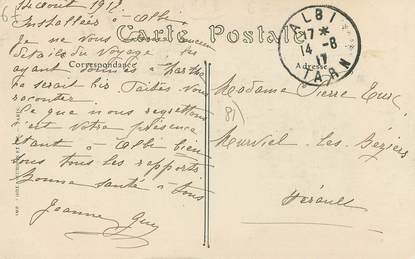 Août 1917
Installées à Albi
Je ne vous aucun
détails du voyage, les
ayant donnés à Marthe
Ce que nous regrettons
c'est votre présence
étant à Albi bien
sous tous les rapports.
Bonne santé à tous
Jeanne
Carte Postale
Correspondance
Adresse
ALBI
17 *
14 -8
17
TARN
Madame Pierre
Murviel-les-Béziers
Hérault
81